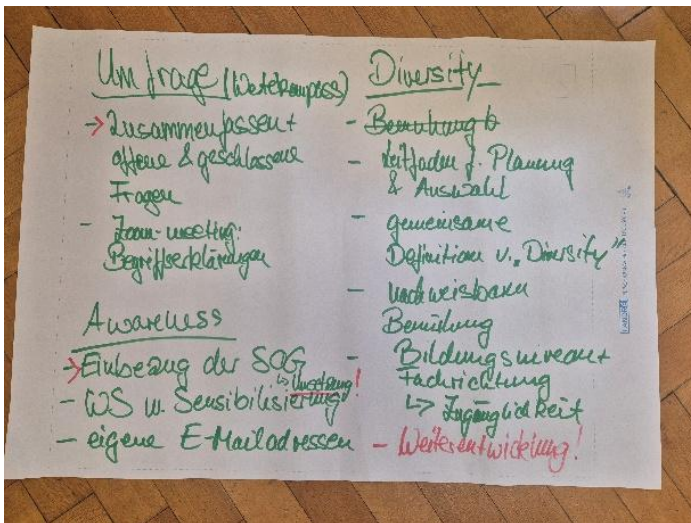 Umfrage (Wertekompass)
→ Zusammenfassen +
offene & geschlossene
Fragen
- Zoom-meeting:
Begriffserklärungen
Awareness
→ Einbezug der SOG
↳ Umsetzung!
- WS u. Sensibilisierung
- eigene E-Mailadressen
Diversity
-
- Leitfaden f. Planung
& Auswahl
- gemeinsame
Definition v. „Diversity"
- nachweisbare
Bemühung
- Bildungsniveau +
Fachrichtung
↳ Zugänglichkeit
- Weiterentwicklung!